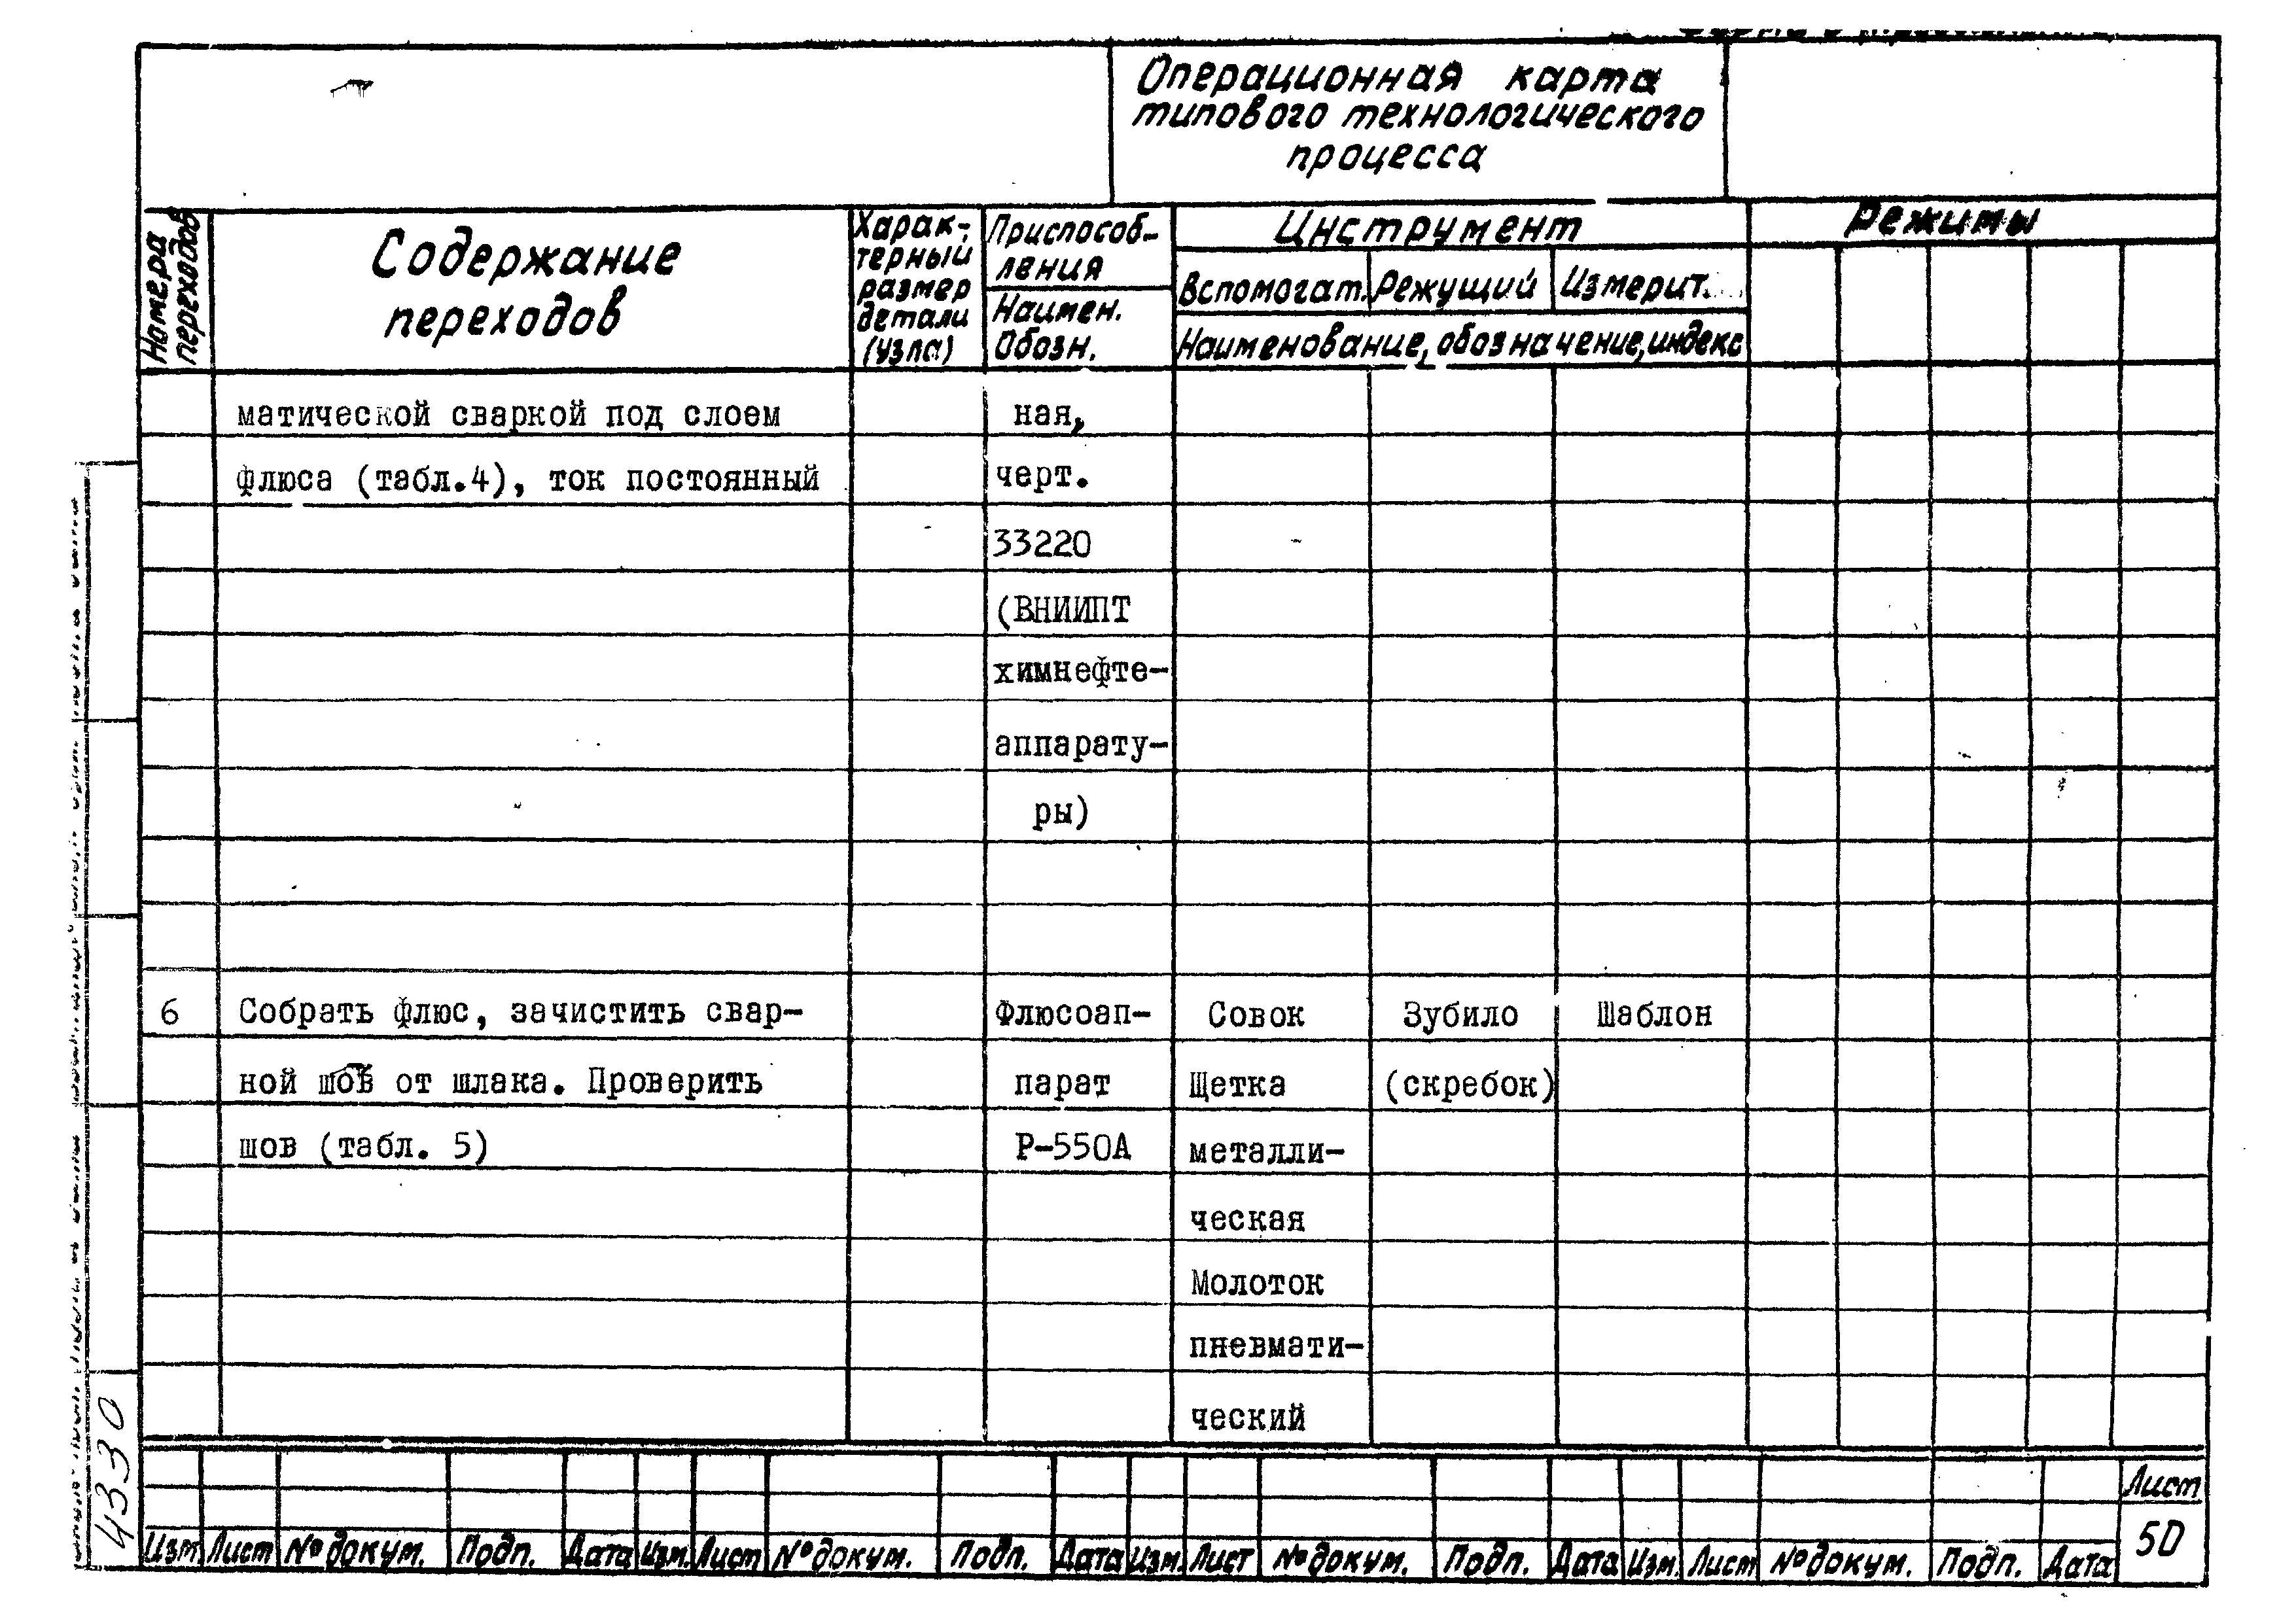 Операционная карта
типового технологического
процесса
Номера переходов
Содержание
переходов
Харак-
терный
размер
детали
(узла)
Приспособ-
ления
Наимен.
Обозн.
Инструмент
Вспомогат. Режущий Измерит.
Наименование, обозначение, индекс
Режимы
матической сваркой под слоем ная,
флюса (табл.4), ток постоянный черт.
33220
(ВНИИПТ
химнефте-
аппарату-
ры)
6 Собрать флюс, зачистить свар- Флюсоап- Совок Зубило Шаблон
ной шов от шлака. Проверить парат Щетка (скребок)
шов (табл. 5) Р-550А металли-
ческая
Молоток
пневмати-
ческий
Лист
50
Изм. Лист № докум. Подп. Дата Изм. Лист № докум. Подп. Дата Изм. Лист № докум. Подп. Дата Изм. Лист № докум. Подп. Дата
4330